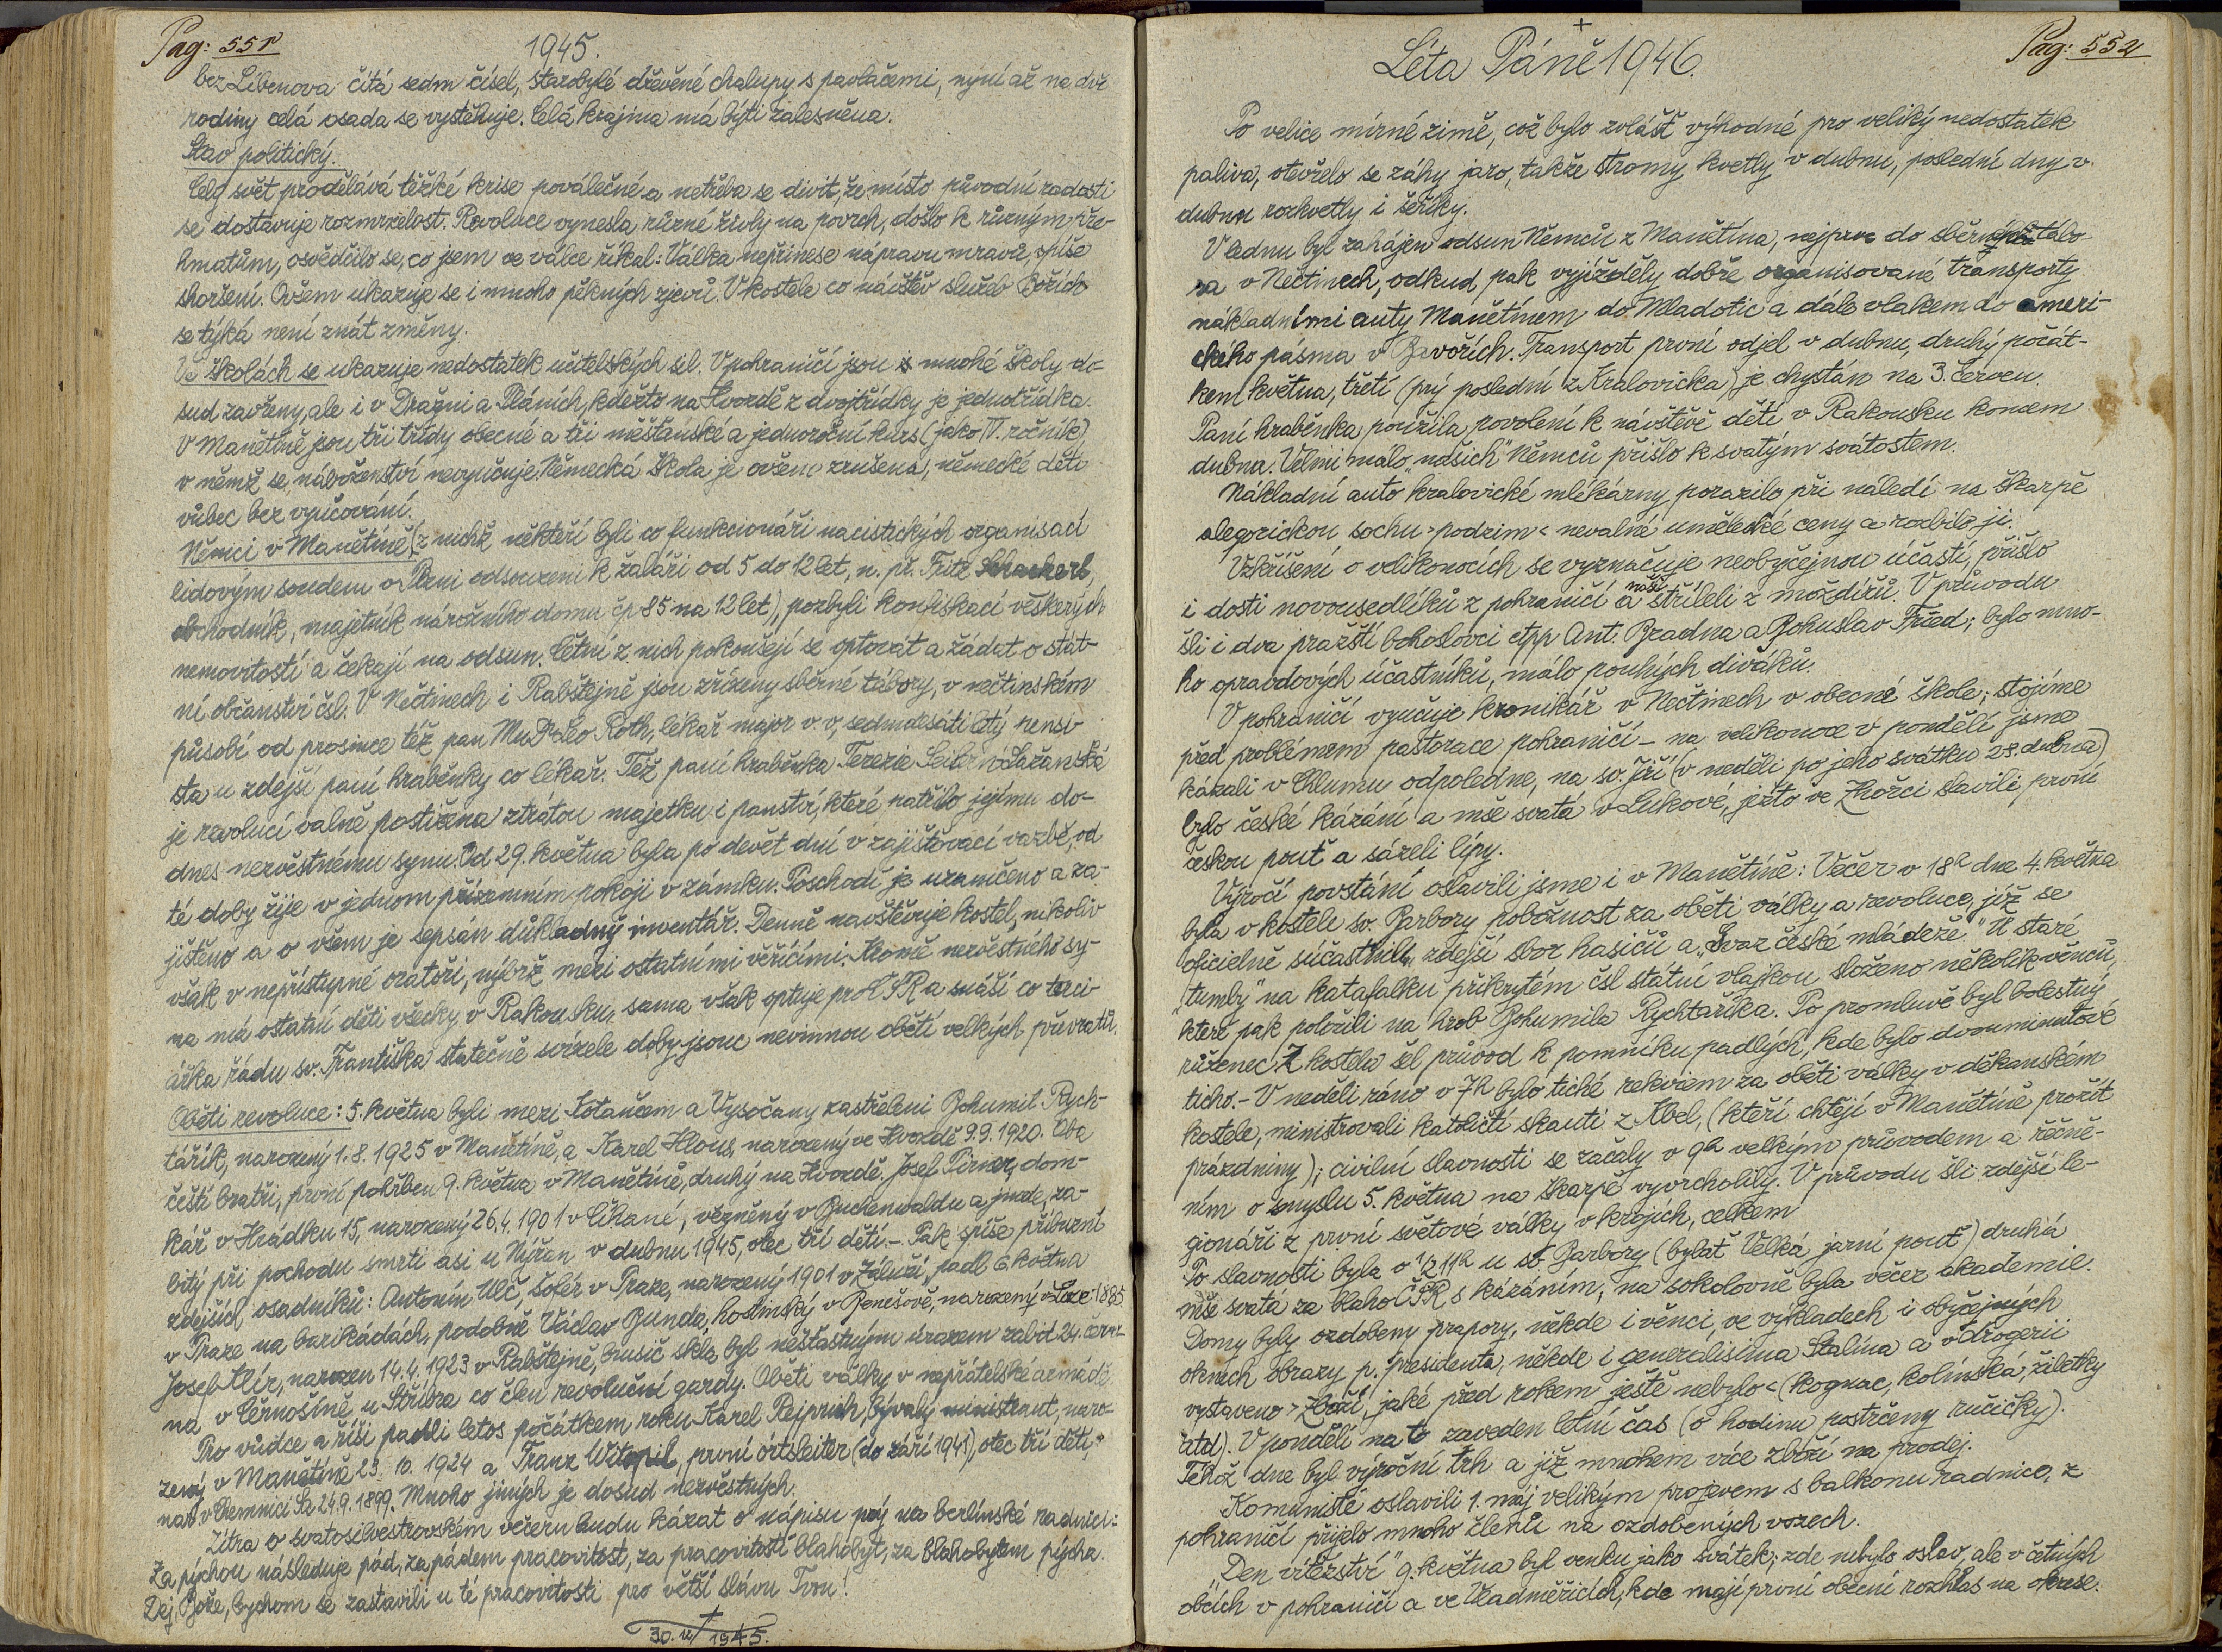 Pag: 551
1945.
bez Libenova čítá sedm čísel, starobylé dřevěné chalupy s pavlačemi, nyní až na dvě
rodiny celá osada se vystěhuje. Celá krajina má býti zalesněna.
Stav politický.
Celý svět prodělává těžké krise poválečné a netřeba se divit, že místo původní radosti
se dostavuje rozmrzelost. Revoluce vynesla různé živly na povrch, došlo k různým pře-
hmatům, osvědčilo se, co jsem ve válce říkal: Válka nepřinese nápravu mravů, spíše
zhoršení. Ovšem ukazuje se i mnoho pěkných zjevů. V kostele co návštěv služeb Božích
se týká není znát změny.
Ve školách se ukazuje nedostatek učitelských sil. V pohraničí jsou mnohé školy do-
sud zavřeny, ale i v Dražni a Pláních, kdežto na Hvozdě z dvojtřídky je jednotřídka.
V Manětíně jsou tři třídy obecné a tři měšťanské a jednoroční kurs (jako IV. ročník),
v němž se náboženství nevyučuje. Německá škola je ovšem zrušena, německé děti
vůbec bez vyučování.
Němci v Manětíně (z nichž někteří byli co funkcionáři nacistických organisací
lidovým soudem v Plzni odsouzeni k žaláři od 5 do 12 let, n. př. Fritz Schacherl,
obchodník, majetník nárožního domu čp 85 na 12 let), pozbyli konfiskací veškerých
nemovitostí a čekají na odsun. Četní z nich pokoušejí se optovat a žádat o stát-
ní občanství čsl. V Nečtinech i Rabštejně jsou zřízeny sběrné tábory, v nečtinském
působí od prosince též pan MuDr Leo Roth, lékař major v. v., sedmdesátiletý pensi-
sta u zdejší paní hraběnky co lékař. Též paní hraběnka Terezie Seilern-Lažanská
je revolucí valně postižena ztrátou majetku i panství, které patřilo jejímu do-
dnes nezvěstnému synu. Od 29. května byla po devět dní v zajišťovací vazbě, od
té doby žije v jednom přízemním pokoji v zámku. Poschodí je uzamčeno a za-
jištěno a o všem je sepsán důkladný inventář. Denně navštěvuje kostel, nikoliv
však v nepřístupné oratoři, nýbrž mezi ostatními věřícími. Kromě nezvěstného sy-
na má ostatní děti všecky v Rakousku, sama však optuje pro ČSR a snáší co terci-
ářka řádu sv. Františka statečně svízele doby jsouc nevinnou obětí velkých převratů.
Oběti revoluce: 5. května byli mezi a Vysočany zastřeleni Bohumil Rych-
tářík, narozený 1.8.1925 v Manětíně, a Karel Hlous, narozený ve Hvozdě 9.9.1920. Oba
čeští bratři, první pohřben 9. května v Manětíně, druhý na Hvozdě. Josef Pirner, dom-
kář v Hrádku 15, narozený 26.4.1901 v Čihané, vězněný v Buchenwaldu a jinde, za-
bitý při pochodu smrti asi u Nýřan v dubnu 1945, otec tří dětí. - Pak spíše příbuzní
zdejších osadníků: Antonín Ulč, šofér v Praze, narozený 1901 v Záluži, padl 6. května
v Praze na barikádách, podobně Václav Bunda, hostinský v Benešově, narozený v Loze 1885.
Josef Mír, narozen 14.4.1923 v Rabštejně, brusič skla byl nešťastným úrazem zabit 24. červ-
na v Černošíně u Stříbra co člen revoluční gardy. Oběti války v nepřátelské armádě.
Pro vůdce a říši padli letos počátkem roku Karel Rejprich, bývalý ministrant, naro-
zený v Manětíně 23. 10. 1924 a Franz Witopil, první ortsleiter (do září 1941), otec tří dětí,
nar. v Chemnici Sa 24.9.1899. Mnoho jiných je dosud nezvěstných.
Zítra o svatosilvestrovském večeru budu kázat o nápisu prý na berlínské radnici:
Za pýchou následuje pád, za pádem pracovitost, za pracovitostí blahobyt, za blahobytem pýcha.
Dej, Bože, bychom se zastavili u té pracovitosti pro větší slávu Tvou!
30. 12/1945.
Pag: 552
Léta Páně 1946.
Po velice mírné zimě, což bylo zvlášť výhodné pro veliký nedostatek
paliva, otevřelo se záhy jaro, takže stromy kvetly v dubnu, poslední dny v
dubnu rozkvetly i šeříky.
V lednu byl zahájen odsun Němců z Manětína, nejprve do sběrného tábo-
ra v Nečtinech, odkud pak vyjížděly dobře organisované transporty
nákladními auty Manětínem do Mladotic a dále vlakem do ameri-
ckého pásma v Bavořích. Transport první odjel v dubnu, druhý počát-
kem května, třetí (prý poslední z Kralovicka) je chystán na 3. červen.
Paní hraběnka použila povolení k návštěvě dětí v Rakousku koncem
dubna. Velmi málo „našich" Němců přišlo k svatým svátostem.
Nákladní auto kralovické mlékárny porazilo při náledí na škarpě
alegorickou sochu »podzim« nevalné umělecké ceny a rozbilo ji.
Vzkříšení o velikonocích se vyznačuje neobyčejnou účastí, přišlo
i dosti novousedlíků z pohraničí a naši stříleli z moždířů. V průvodu
šli i dva pražští bohoslovci ctpp Ant. Bradna a Bohuslav Třed; bylo mno-
ho opravdových účastníků, málo pouhých diváků.
V pohraničí vyučuje kronikář v Nečtinech v obecné škole; stojíme
před problémem pastorace pohraničí - na velikonoce v pondělí jsme
kázali v Chlumu odpoledne, na sv. Jiří (v neděli po jeho svátku 28. dubna)
bylo české kázání a mše svatá v Lukové, ježto ve Zhořci slavili první
českou pouť a sázeli lípy.
Výročí povstání oslavili jsme i v Manětíně: Večer v 18h dne 4. května
byla v kostele sv. Barbory pobožnost za oběti války a revoluce, jíž se
oficielně súčastnily zdejší sbor hasičů a „Svaz české mládeže." U staré
„tumby" na katafalku přikrytém čsl státní vlajkou složeno několik věnců,
které pak položili na hrob Bohumila Rychtaříka. Po promluvě byl bolestný
růženec. Z kostela šel průvod k pomníku padlých, kde bylo dvouminutové
ticho. - V neděli ráno v 7h bylo tiché rekviem za oběti války v děkanském
kostele, ministrovali katoličtí skauti z Kbel, (kteří chtějí v Manětíně prožít
prázdniny); civilní slavnosti se začaly v 9h velkým průvodem a řečně-
ním o smyslu 5. května na škarpě vyvrcholily. V průvodu šli zdejší le-
gionáři z první světové války v krojích, celkem
Po slavnosti byla o ½11h u sv. Barbory (bylať Velká jarní pouť) druhá
mše svatá za blaho ČSR s kázáním, na sokolovně byla večer akademie.
Domy byly ozdobeny prapory, někde i věnci, ve výkladech i obyčejných
oknech obrazy p. presidenta, někde i generalisima Stalina a v drogerii
vystaveno »Zboží, jaké před rokem ještě nebylo« (kognac, kolínská, žiletky
atd). V pondělí na to zaveden letní čas (o hodinu postrčeny ručičky).
Téhož dne byl výroční trh a již mnohem více zboží na prodej.
Komunisté oslavili 1. máj velikým projevem s balkonu radnice, z
pohraničí přijelo mnoho členů na ozdobených vozech.
„Den vítězství" 9. května byl venku jako svátek; zde nebylo oslav, ale v četných
obcích v pohraničí a ve Vladměřicích, kde mají první obecní rozhlas na okrese.